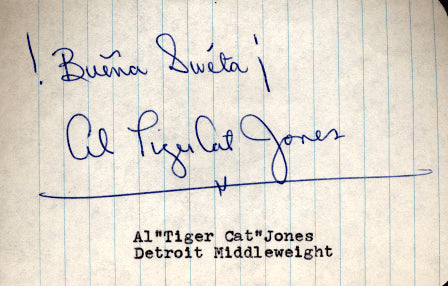 ! Bueña Swéta ¡
Al TigerCat Jones
Al"Tiger Cat"Jones
Detroit Middleweight